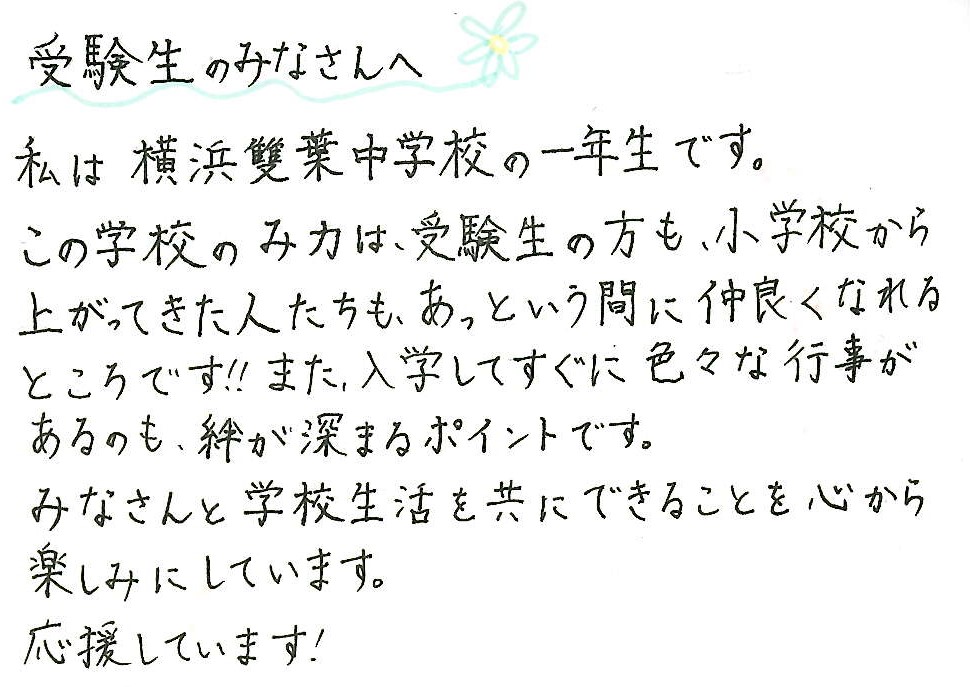 受験生のみなさんへ
私は横浜雙葉中学校の一年生です。
この学校のみ力は、受験生の方も、小学校から
上がってきた人たちも、あっという間に仲良くなれる
ところです!! また、入学してすぐに色々な行事が
あるのも、絆が深まるポイントです。
みなさんと学校生活を共にできることを心から
楽しみにしています。
応援しています!